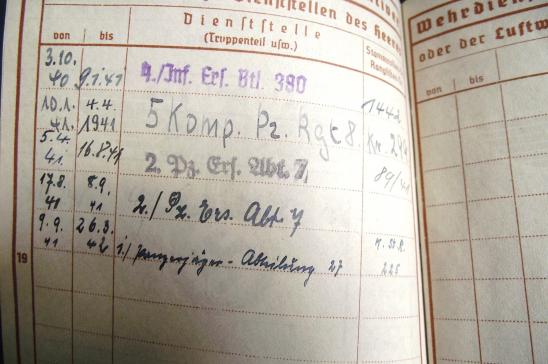 Dienststellen des Heeres
Dienststelle
(Truppenteil usw.)
von bis
3.10. 40 9.1.41 4./Inf. Ers. Btl. 380
10.1. 41. 4.4. 1941 5 Komp. Pz. Rgt 8. 1442
5.4. 41. 16.8.41 2. Pz. Ers. Abt. 7, 89/41
17.8. 41 8.9. 41 2./Pz. Ers. Abt. 7
9.9. 41 26.3. 42 1./Panzerjäger-Abteilung 27 225
19
Wehrdien
oder der Luftw
von bis